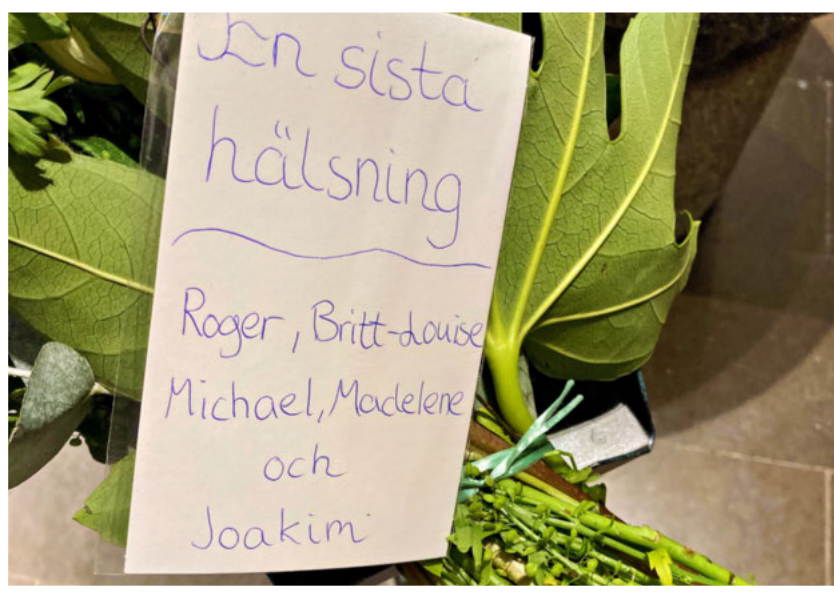 En sista
hälsning
Roger, Britt-Louise
Michael, Madelene
och
Joakim